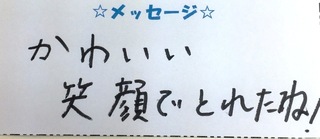 ☆メッセージ☆
かわいい
笑顔でとれたね!